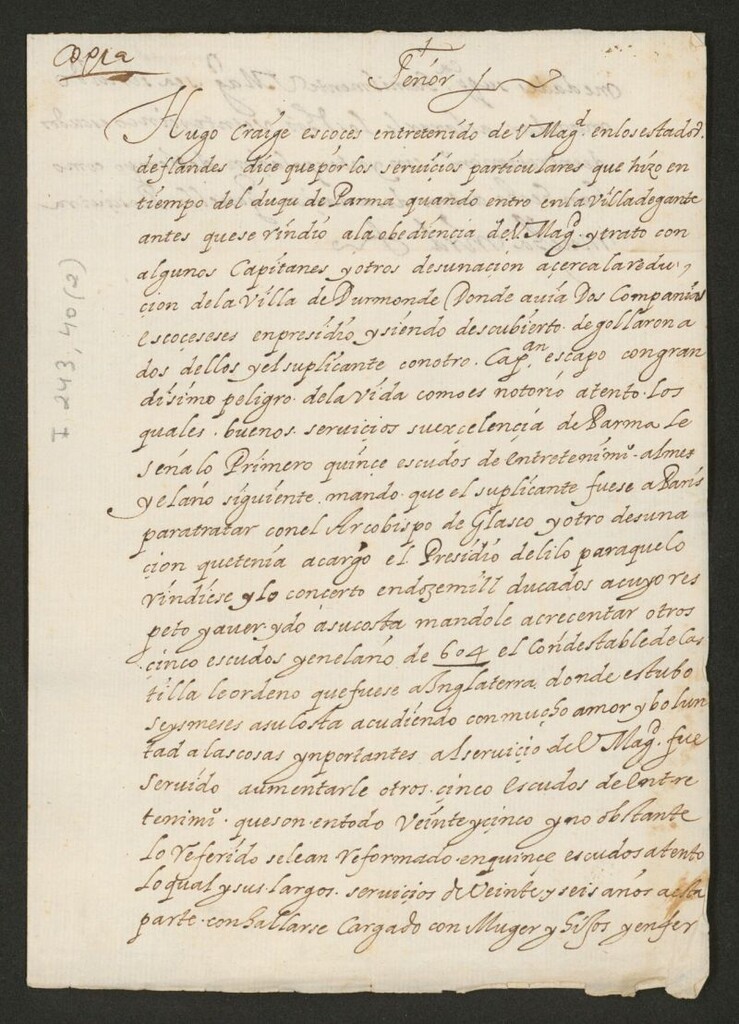 Copia
Señor
Hugo Craige escoces entretenido de V Magd. en los estados d.
de flandes dice que por los servicios particulares que hizo en
tiempo del duqu de Parma quando entro en la Villa de gante
antes que se rindio a la obediencia de V. Magd. y trato con
algunos Capitanes y otros de su nacion açerca la redu-
cion de la Villa de Durmonde Donde auia Dos Companias
escoçeses en presidio y siendo descubierto degollaron a
dos dellos y el suplicante con otro Capan. escapo con gran
disimo peligro de la vida como es notorio atento los
quales buenos servicios su excelencia de Parma le
señalo Primero quince escudos de entretenimo. al mes
y el año siguiente mando que el suplicante fuese a Paris
para tratar con el Arcobispo de Glasco y otro de su na
cion que tenia a cargo el Presidio de lilo para que lo
rindiese y lo concerto en doze mill ducados a cuyo res
peto y aver ydo a su costa mandole acrecentar otros
cinco escudos y en el año de 604 el Condestable de Cas
tilla le ordeno que fuese a Inglaterra donde estubo
seys meses a su costa acudiendo con mucho amor y bolun
tad a las cosas ynportantes al servicio de V Magd. fue
servido aumentarle otros cinco escudos de entre
tenimo. que son en todo Veinte y cinco y no obstante
lo referido se le an reformado en quince escudos atento
lo qual y sus largos servicios de Veinte y seis años a esta
parte con hallarse Cargado con Muger y hijos y enfer
I 243, 40 (2)